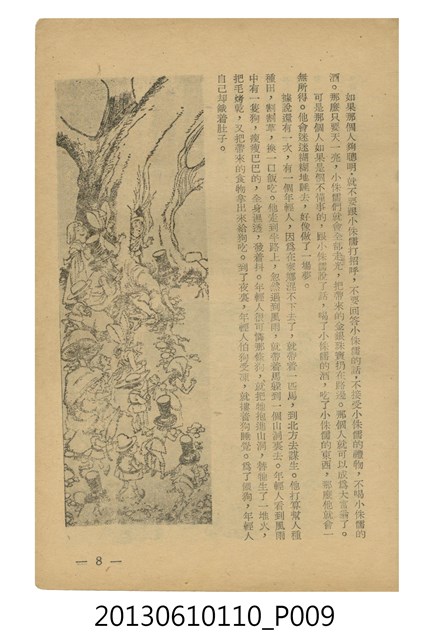 如果那個人夠聰明，就不要跟小侏儒打招呼，不要回答小侏儒的話，不接受小侏儒的禮物，不喝小侏儒的
酒。那麼只要天一亮，小侏儒們就會全部走光，把帶來的金銀珠寶扔在路邊。那個人就可以成為大富翁了。
可是那個人如果是個不懂事的，跟小侏儒說了話，喝了小侏儒的酒，吃了小侏儒的東西，那麼他就會一
無所得。他會迷迷糊糊地睡去，好像做了一場夢。
據說還有一次，有一個年輕人，因為在家鄉混不下去了，就帶着一匹馬，到北方去謀生。他打算幫人種
種田，割割草，換一口飯吃。他走到半路上，忽然遇到風雨，就帶着馬躲到一個山洞裏去。年輕人看到風雨
中有一隻狗，瘦瘦巴巴的，全身濕透，發着抖。年輕人很可憐那條狗，就把牠抱進山洞，替牠生了一堆火，
把毛烤乾，又把帶來的食物拿出來給狗吃。到了夜裏，年輕人怕狗受凍，就摟着狗睡覺。為了餵狗，年輕人
自己却餓着肚子。
— 8 —
20130610110_P009